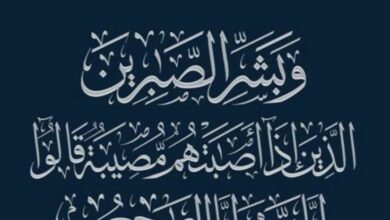 وَبَشِّرِ الصَّٰبِرِينَ
الَّذِينَ إِذَا أَصَٰبَتْهُم مُّصِيبَةٌ قَالُوٓا